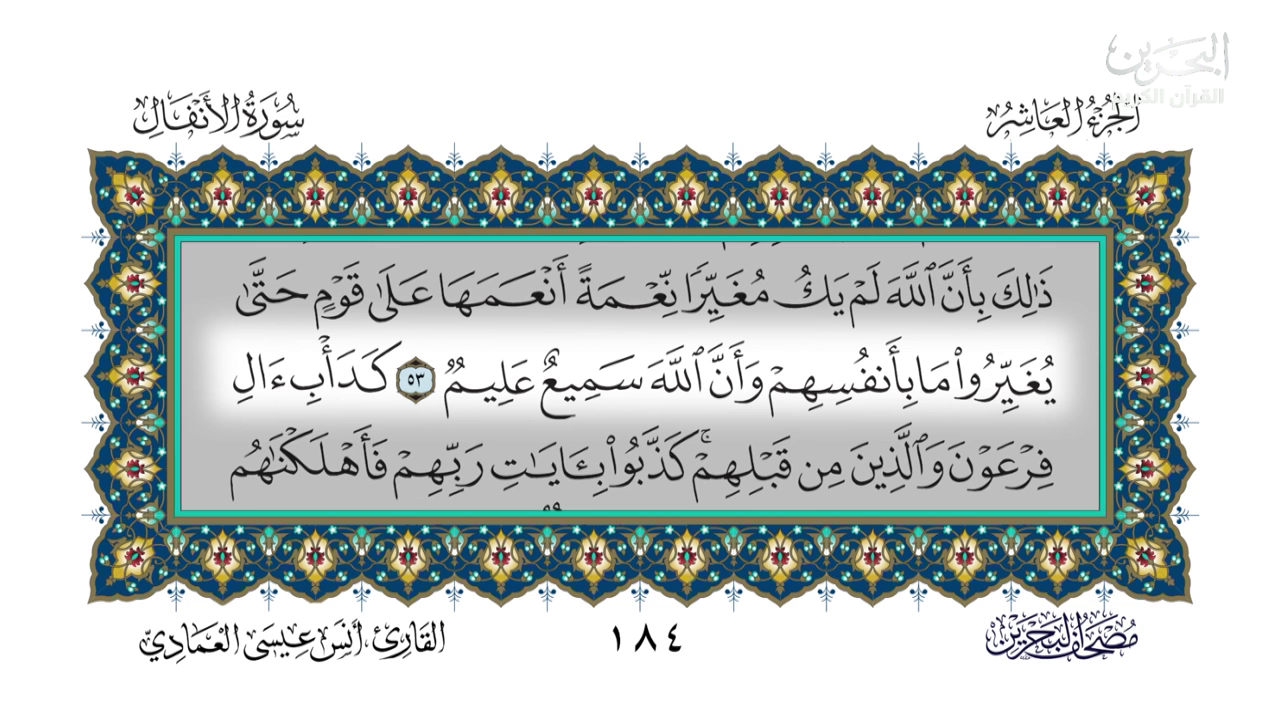 البحرين
القرآن الكريم
الجزء العاشر
سورة الأنفال
ذَٰلِكَ بِأَنَّ ٱللَّهَ لَمْ يَكُ مُغَيِّرًا نِّعْمَةً أَنْعَمَهَا عَلَىٰ قَوْمٍ حَتَّىٰ
يُغَيِّرُوا۟ مَا بِأَنفُسِهِمْ وَأَنَّ ٱللَّهَ سَمِيعٌ عَلِيمٌ ٥٣ كَدَأْبِ ءَالِ
فِرْعَوْنَ وَٱلَّذِينَ مِن قَبْلِهِمْ ۚ كَذَّبُوا۟ بِـَٔايَـٰتِ رَبِّهِمْ فَأَهْلَكْنَـٰهُم
مصحف البحرين
١٨٤
القارئ أنس عيسى العمادي